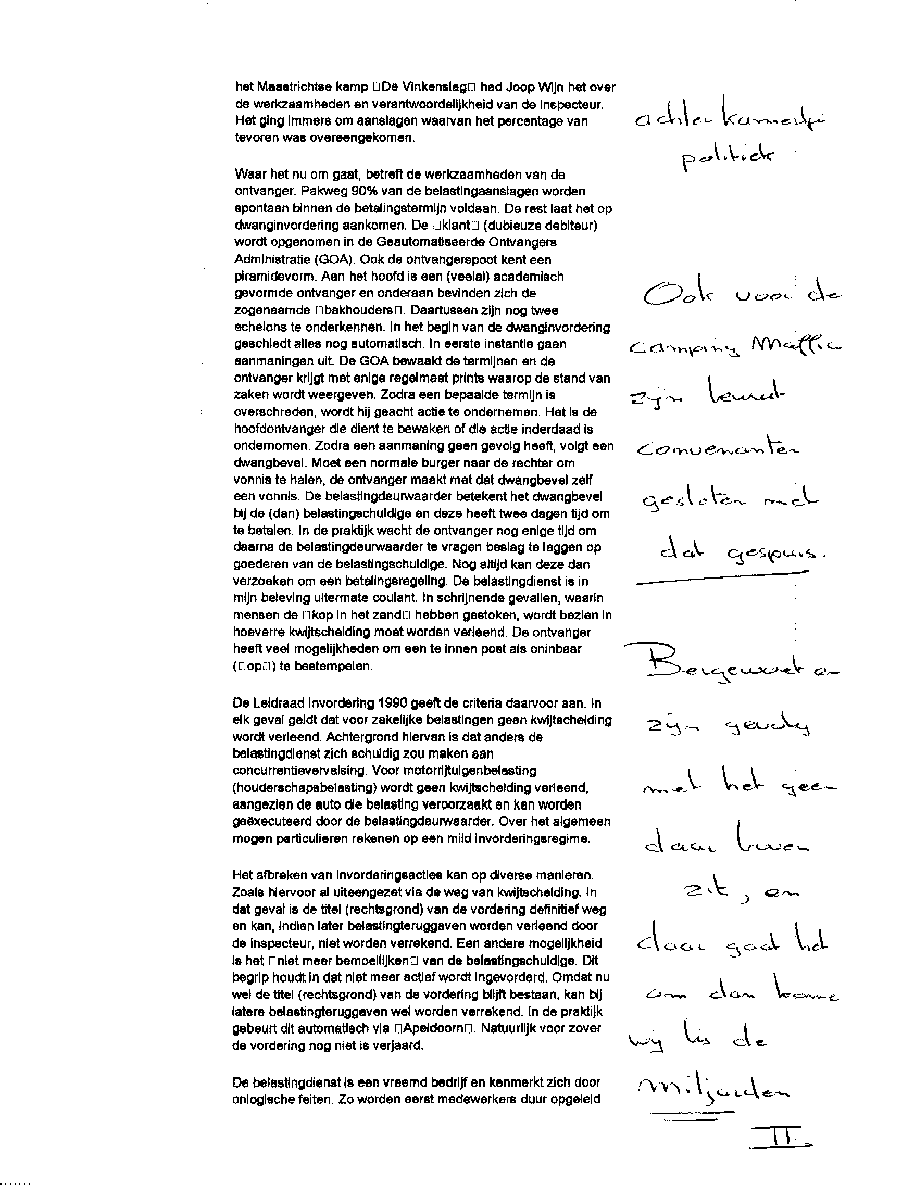 het Maastrichtse kamp □De Vinkenslag□ had Joop Wijn het over
de werkzaamheden en verantwoordelijkheid van de inspecteur.
Het ging immers om aanslagen waarvan het percentage van
tevoren was overeengekomen.
Waar het nu om gaat, betreft de werkzaamheden van de
ontvanger. Pakweg 90% van de belastingaanslagen worden
spontaan binnen de betalingstermijn voldaan. De rest laat het op
dwanginvordering aankomen. De □klant□ (dubieuze debiteur)
wordt opgenomen in de Geautomatiseerde Ontvangers
Administratie (GOA). Ook de ontvangerspoot kent een
piramidevorm. Aan het hoofd is een (veelal) academisch
gevormde ontvanger en onderaan bevinden zich de
zogenaamde □bakhouders□. Daartussen zijn nog twee
echelons te onderkennen. In het begin van de dwanginvordering
geschiedt alles nog automatisch. In eerste instantie gaan
aanmaningen uit. De GOA bewaakt de termijnen en de
ontvanger krijgt met enige regelmaat prints waarop de stand van
zaken wordt weergeven. Zodra een bepaalde termijn is
overschreden, wordt hij geacht actie te ondernemen. Het is de
hoofdontvanger die dient te bewaken of die actie inderdaad is
ondernomen. Zodra een aanmaning geen gevolg heeft, volgt een
dwangbevel. Moet een normale burger naar de rechter om
vonnis te halen, de ontvanger maakt met dat dwangbevel zelf
een vonnis. De belastingdeurwaarder betekent het dwangbevel
bij de (dan) belastingschuldige en deze heeft twee dagen tijd om
te betalen. In de praktijk wacht de ontvanger nog enige tijd om
daarna de belastingdeurwaarder te vragen beslag te leggen op
goederen van de belastingschuldige. Nog altijd kan deze dan
verzoeken om een betalingsregeling. De belastingdienst is in
mijn beleving uitermate coulant. In schrijnende gevallen, waarin
mensen de □kop in het zand□ hebben gestoken, wordt bezien in
hoeverre kwijtschelding moet worden verleend. De ontvanger
heeft veel mogelijkheden om een te innen post als oninbaar
(□op□) te bestempelen.
De Leidraad Invordering 1990 geeft de criteria daarvoor aan. In
elk geval geldt dat voor zakelijke belastingen geen kwijtschelding
wordt verleend. Achtergrond hiervan is dat anders de
belastingdienst zich schuldig zou maken aan
concurrentievervalsing. Voor motorrijtuigenbelasting
(houderschapsbelasting) wordt geen kwijtschelding verleend,
aangezien de auto die belasting veroorzaakt en kan worden
geëxecuteerd door de belastingdeurwaarder. Over het algemeen
mogen particulieren rekenen op een mild invorderingsregime.
Het afbreken van invorderingsacties kan op diverse manieren.
Zoals hiervoor al uiteengezet via de weg van kwijtschelding. In
dat geval is de titel (rechtsgrond) van de vordering definitief weg
en kan, indien later belastingteruggaven worden verleend door
de inspecteur, niet worden verrekend. Een andere mogelijkheid
is het □niet meer bemoeilijken□ van de belastingschuldige. Dit
begrip houdt in dat niet meer actief wordt ingevorderd. Omdat nu
wel de titel (rechtsgrond) van de vordering blijft bestaan, kan bij
latere belastingteruggaven wel worden verrekend. In de praktijk
gebeurt dit automatisch via □Apeldoorn□. Natuurlijk voor zover
de vordering nog niet is verjaard.
De belastingdienst is een vreemd bedrijf en kenmerkt zich door
onlogische feiten. Zo worden eerst medewerkers duur opgeleid
achterkamertje
politiek
Ook voor de
camping Maffia
zijn
convenanten
gesloten met
dat gespuis.
zijn
met het geen
daar boven
zit, en
daar gaat het
om dan
wij de
miljarden
II